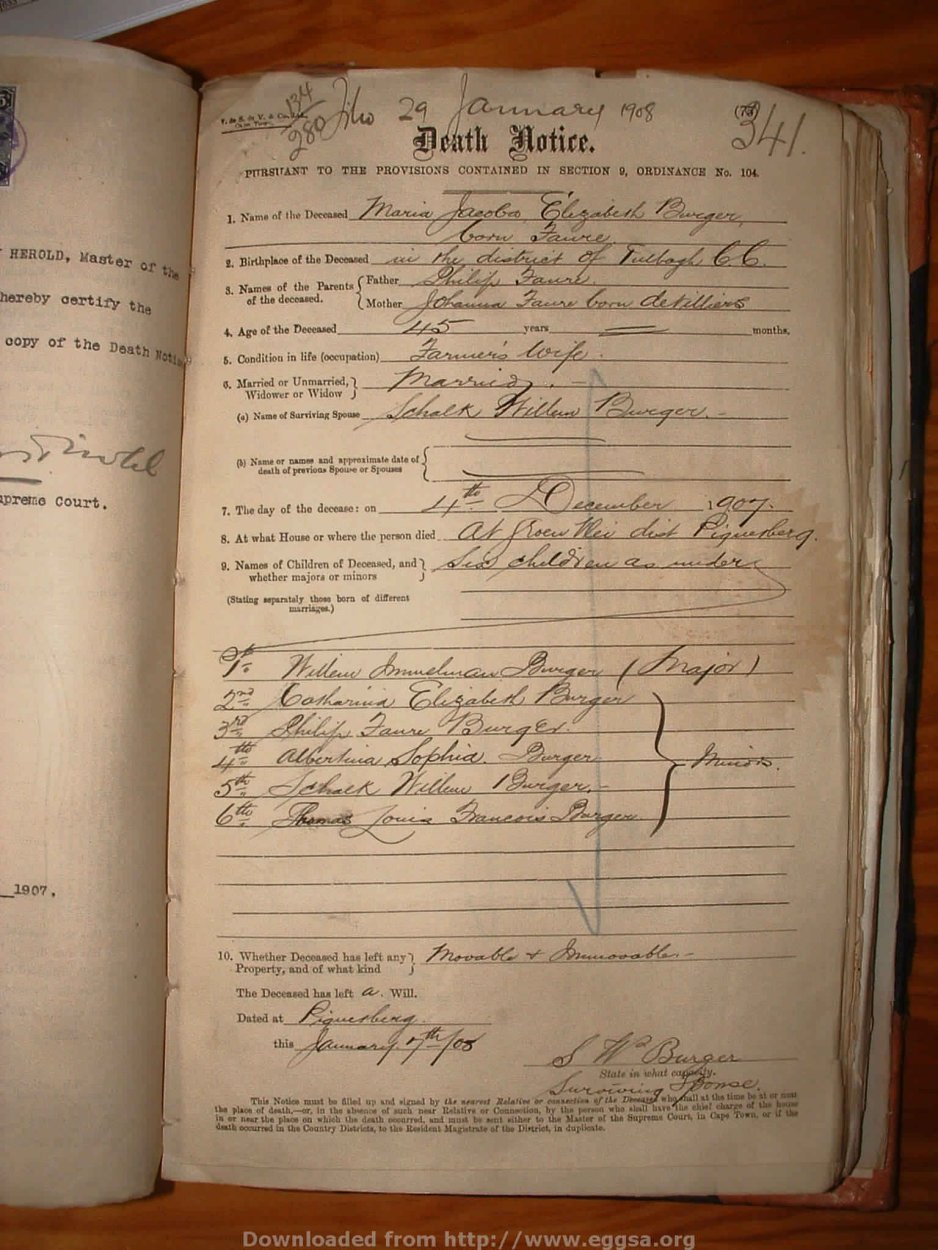 HEROLD, Master of the
hereby certify the
copy of the Death Notice
Supreme Court.
1907.
134
280
Filed 29 January 1908
(73)
341.
Death Notice.
PURSUANT TO THE PROVISIONS CONTAINED IN SECTION 9, ORDINANCE No. 104.
1. Name of the Deceased Maria Jacoba Elizabeth Burger,
born Faure
2. Birthplace of the Deceased in the district of Tulbagh C.C.
3. Names of the Parents of the deceased. Father Philip Faure
Mother Johanna Faure born deVilliers
4. Age of the Deceased 45 years months.
5. Condition in life (occupation) Farmer's Wife.
6. Married or Unmarried, Widower or Widow Married. -
(a) Name of Surviving Spouse Schalk Willem Burger. -
(b) Name or names and approximate date of death of previous Spouse or Spouses
7. The day of the decease: on 4th December 1907.
8. At what House or where the person died At Groen Vlei dist Piquetberg.
9. Names of Children of Deceased, and whether majors or minors Six children as under
(Stating separately those born of different marriages.)
1st. Willem Immelman Burger (Major)
2nd Catharina Elizabeth Burger
3rd Philip Faure Burger.
4th Albertina Sophia. Burger Minors.
5th Schalk Willem Burger. -
6th Thomas Louis Francois Burger
10. Whether Deceased has left any Property, and of what kind Movable + Immovable. -
The Deceased has left a. Will.
Dated at Piquetberg.
this January 7th/08
S W Burger
State in what capacity.
Surviving Spouse.
This Notice must be filled up and signed by the nearest Relative or connection of the Deceased who shall at the time be at or near
the place of death,—or, in the absence of such near Relative or Connection, by the person who shall have the chief charge of the house
in or near the place on which the death occurred, and must be sent either to the Master of the Supreme Court, in Cape Town, or if the
death occurred in the Country Districts, to the Resident Magistrate of the District, in duplicate.
Downloaded from http://www.eggsa.org